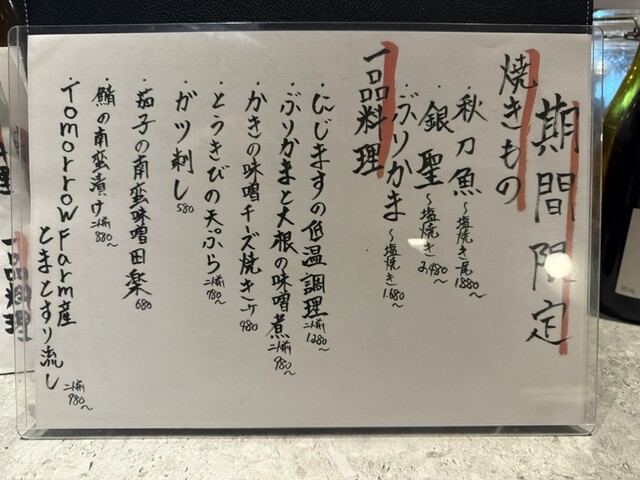 期間限定
焼きもの
・秋刀魚〜塩焼き一尾1880〜
・銀聖〜塩焼き2,480〜
・ぶりかま〜塩焼き1.680〜
一品料理
・にじますの低温調理二人前1280〜
・ぶりかまと大根の味噌煮二人前980〜
・かきの味噌チーズ焼き二ヶ980
・とうきびの天ぷら二人前780〜
・ガツ刺し580
・茄子の南蛮味噌田楽680
・鯖の南蛮漬け二人前880〜
・Tomorrow Farm産
とまとすり流し二人前980〜
一品料理